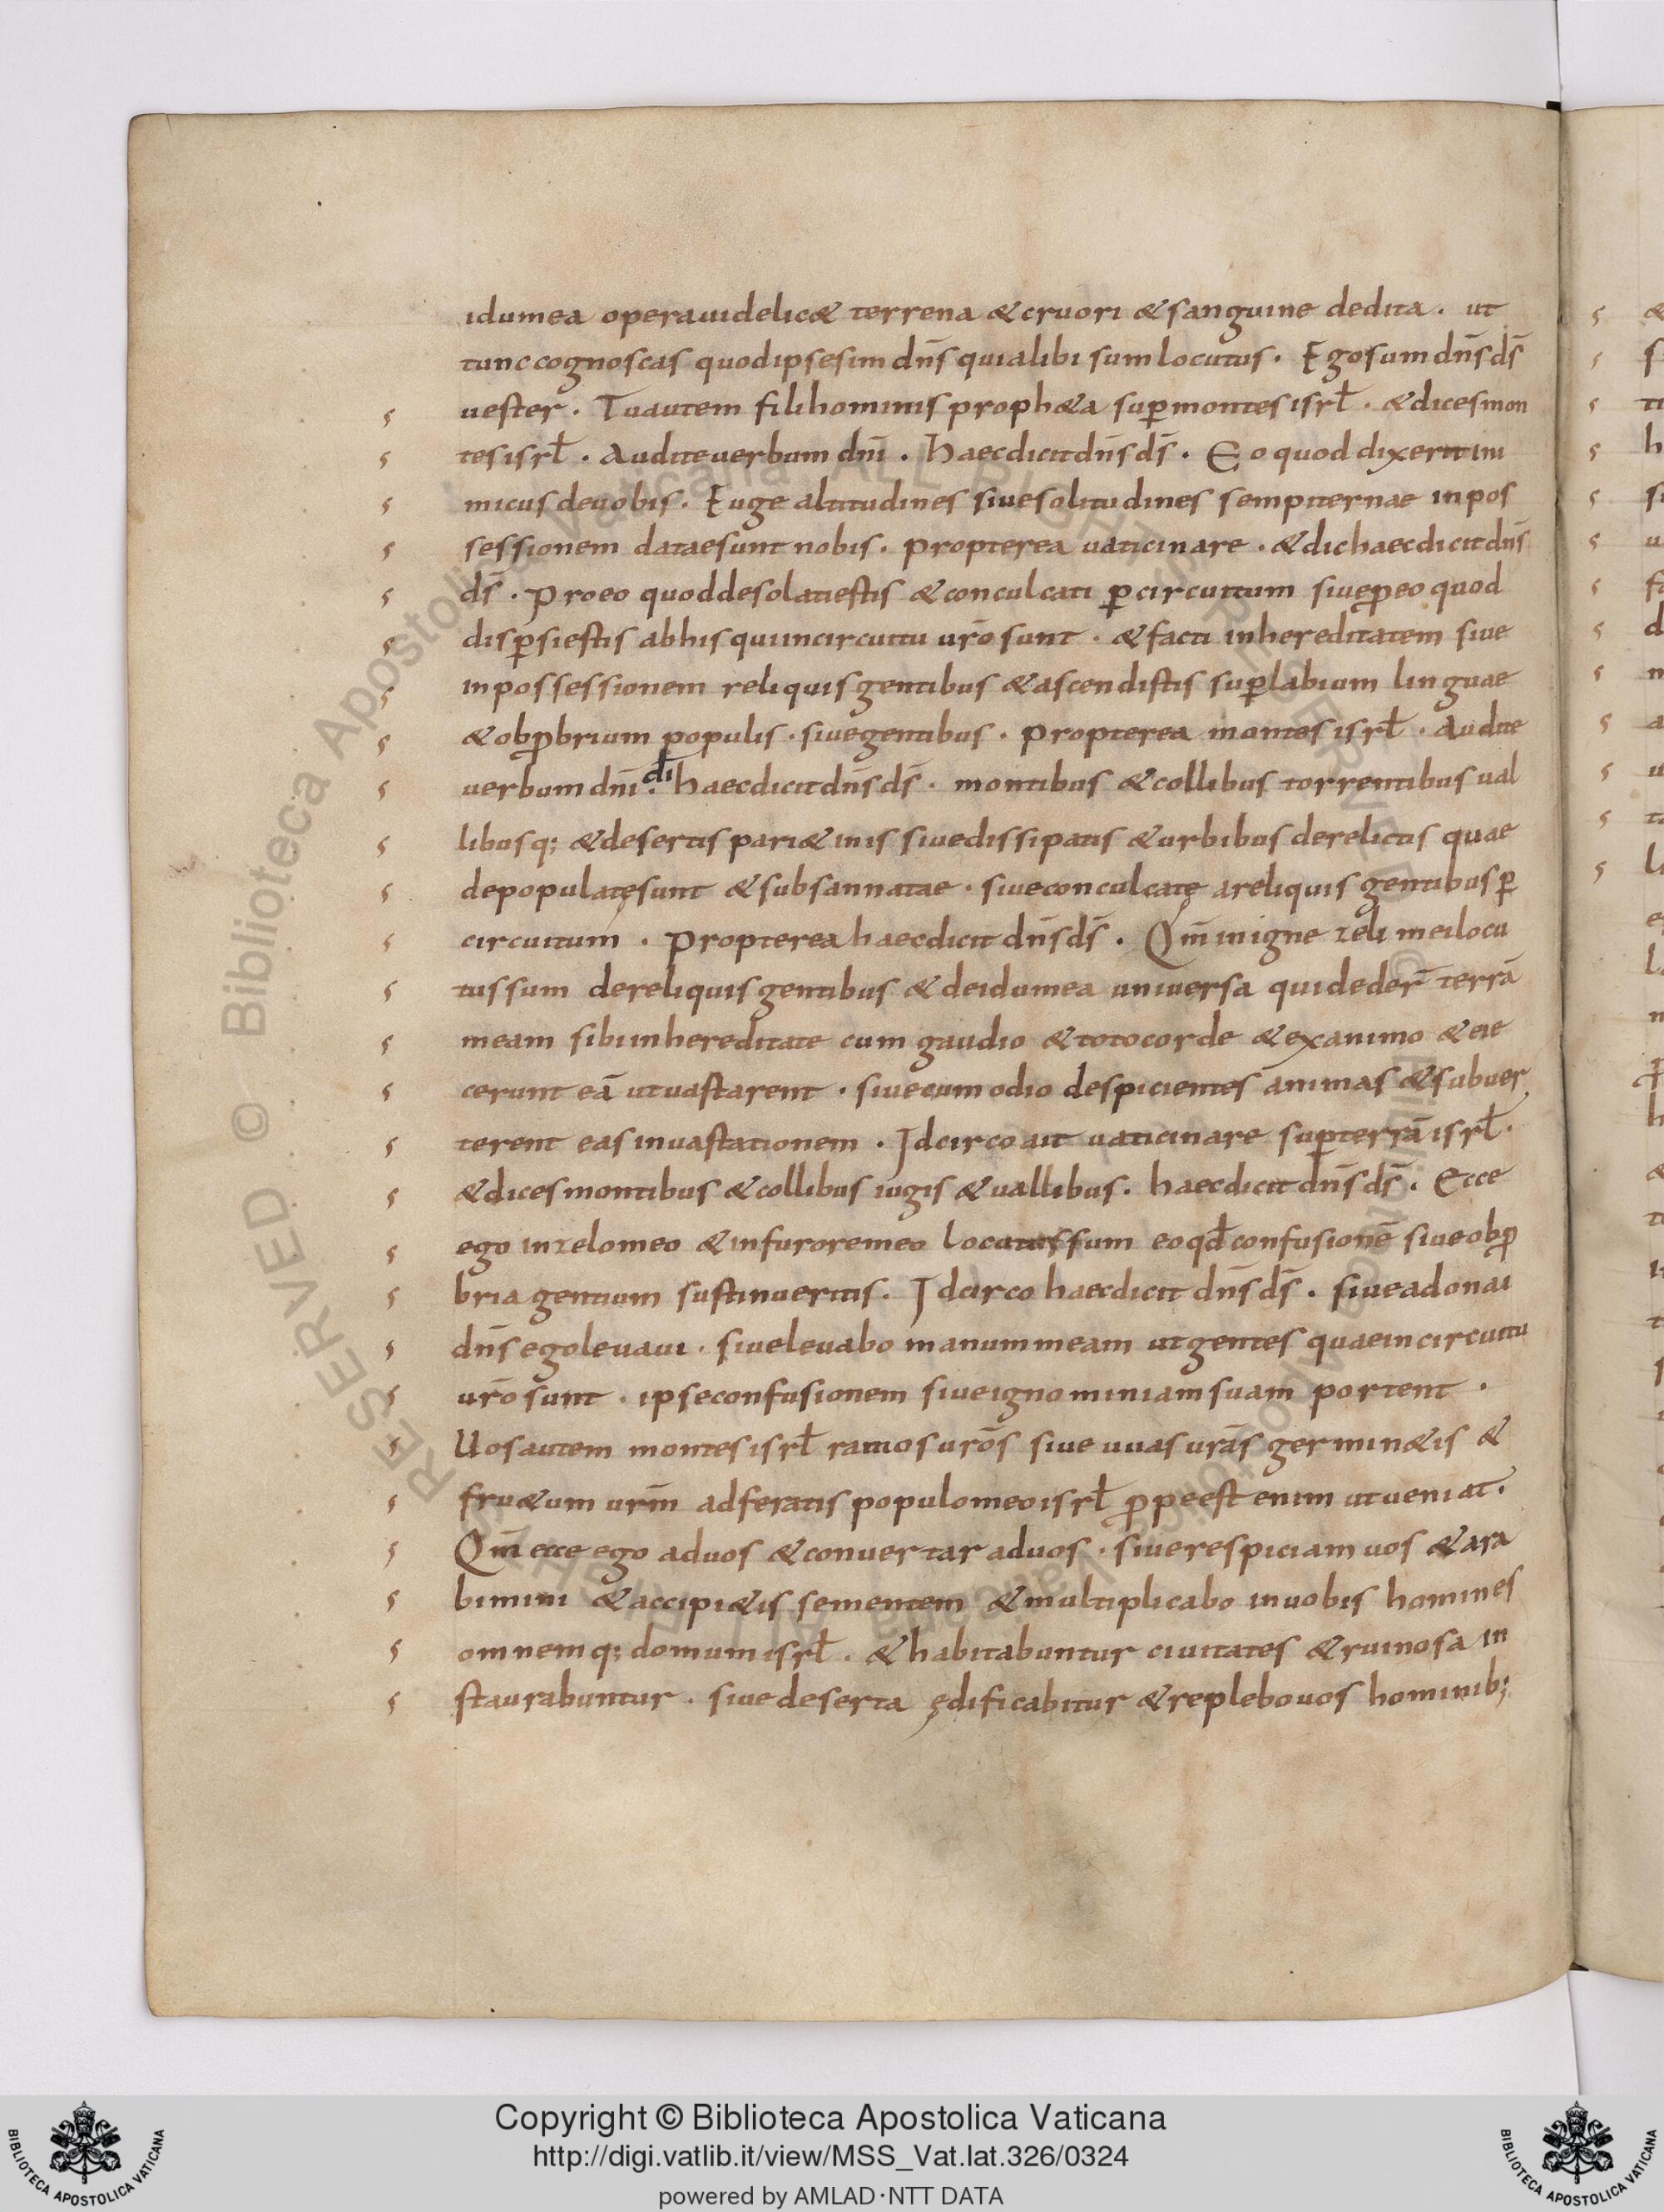 idumea opera uidelic& terrena & cruori & sanguine dedita . ut
tunc cognoscas quod ipse sim dn̄s qui alibi sum locutus . Ego sum dn̄s ds̄
uester . Tu autem fili hominis proph&a sup̱ montes isrł . & dices mon
tes isrł . Audite uerbum dn̄i . Haec dicit dn̄s ds̄ . Eo quod dixerit ini
micus de uobis . Euge altitudines siue solitudines sempiternae in pos
sessionem datae sunt nobis . propterea uaticinare . & dic haec dicit dn̄s
ds̄ . Pro eo quod desolati estis & conculcati ꝑ circuitum siue ꝓ eo quod
disꝑsi estis ab his qui in circuitu ur̄o sunt . & facti in hereditatem siue
in possessionem reliquis gentibus & ascendistis suꝑ labium linguae
& obꝓbrium populis . siue gentibus . propterea montes isrł . Audite
uerbum dn̄i dī . haec dicit dn̄s ds̄ . montibus & collibus torrentibus ual
libusq; & desertis pari&inis siue dissipatis & urbibus derelictis quae
depopulatę sunt & subsannatae . siue conculcatę a reliquis gentibus ꝑ
circuitum . Propterea haec dicit dn̄s ds̄ . Qm̄ in igne zeli mei locu
tus sum de reliquis gentibus & de idumea uniuersa qui deder̄ terrā
meam sibi in hereditate cum gaudio & toto corde & ex animo & eie
cerunt eā ut uastarent . siue cum odio despicientes animas & subuer
terent eas in uastationem . Idcirco ait uaticinare suꝑ terrā isrł .
& dices montibus & collibus iugis & uallibus . haec dicit dn̄s ds̄ . Ecce
ego in zelo meo & in furore meo locutus sum eo qd̄ confusionē siue obꝓ
bria gentium sustinueritis . Idcirco haec dicit dn̄s ds̄ . siue adonai
dn̄s ego leuaui . siue leuabo manum meam ut gentes quae in circuitu
ur̄o sunt . ipse confusionem siue ignominiam suam portent .
Uos autem montes isrł ramos ur̄os siue uuas ur̄as germin&is &
fru&um ur̄m adferatis populo meo isrł ꝓpe est enim ut ueniat .
Qm̄ ecce ego ad uos & conuertar ad uos . siue respiciam uos & ara
bimini & accipi&is sementem & multiplicabo in uobis homines
omnemq; domum isrł . & habitabuntur ciuitates & ruinosa in
staurabuntur . siue deserta ędificabitur & replebo uos hominib;
Copyright © Biblioteca Apostolica Vaticana
http://digi.vatlib.it/view/MSS_Vat.lat.326/0324
powered by AMLAD·NTT DATA
BIBLIOTECA APOSTOLICA VATICANA
BIBLIOTECA APOSTOLICA VATICANA